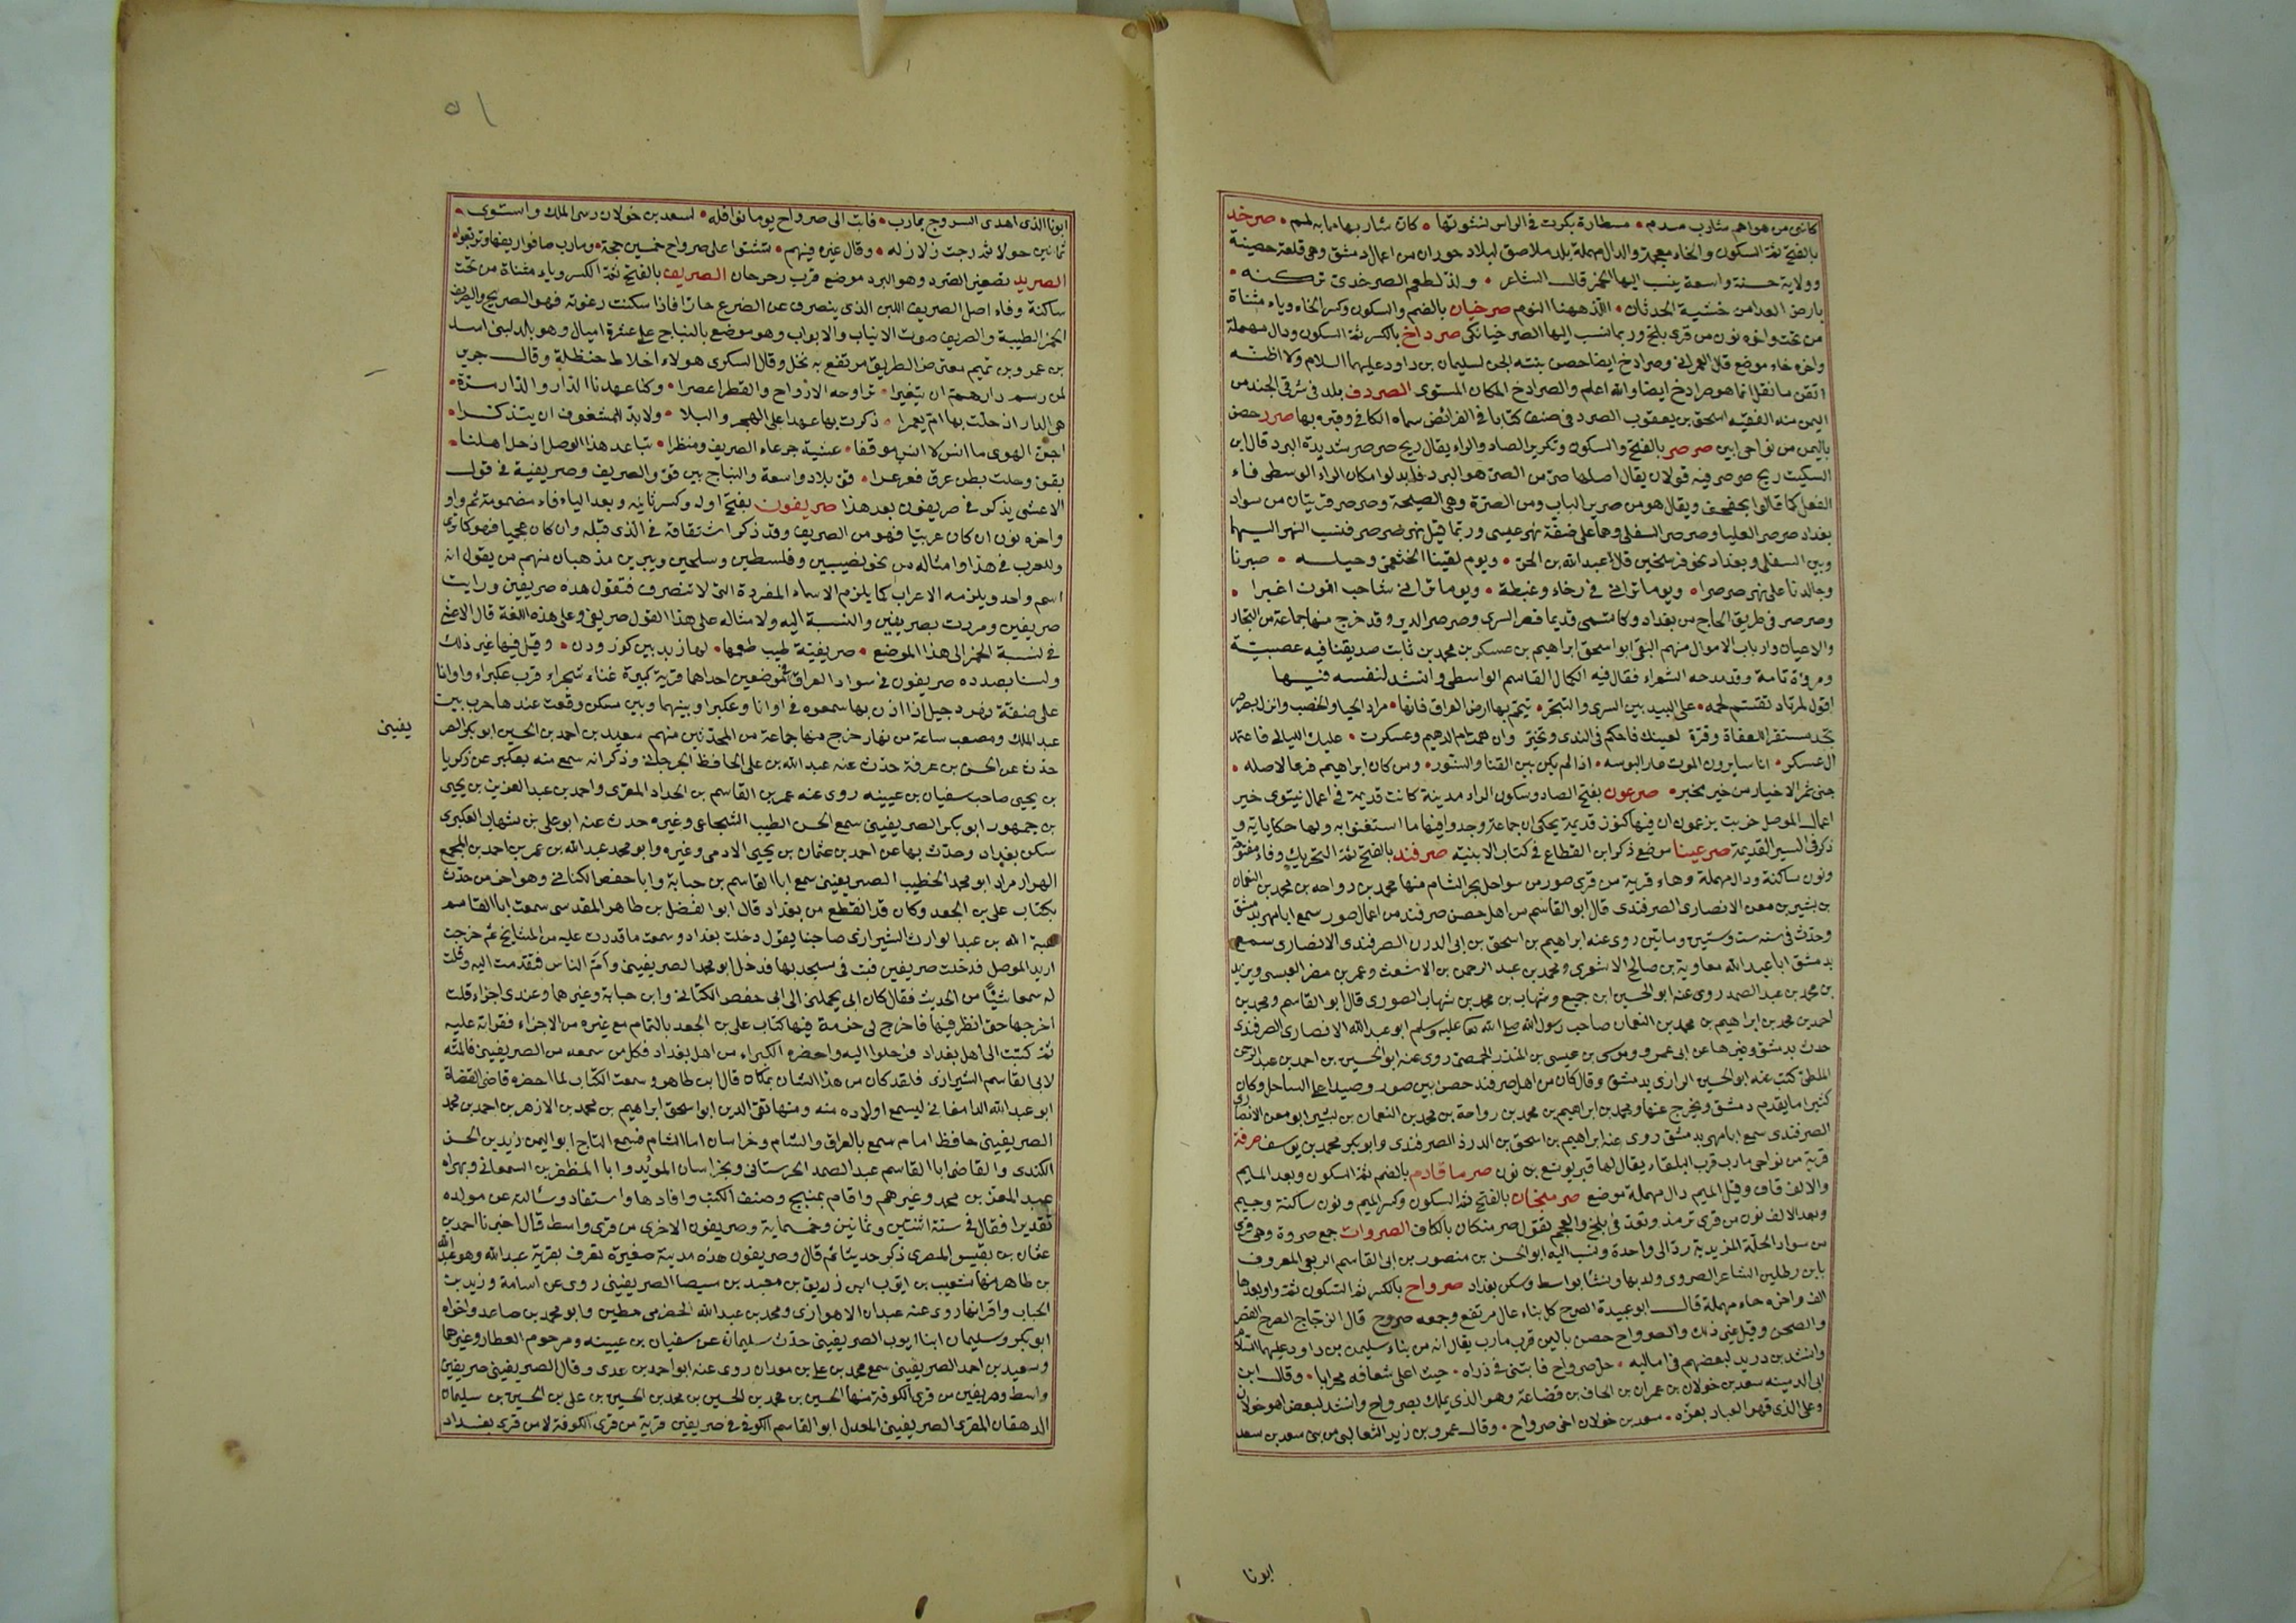 كانني من هواهم شارب مدم • مسطارة بكرت في الراس نشوتها • كان شاربها مما به لمم • صرخد
بالفتح ثم السكون والخاء معجمة والدال مهملة بلد ملاصق لبلاد حوران من اعمال دمشق وهي قلعة حصينة
وولاية حسنة واسعة ينسب اليها الخمر قال الشاعر • ولذ لطعم الصرخدي تركنه •
بارض العدا من خشية الحدثان • اللذ ههنا النوم صرخيان بالضم والسكون وكسر الخاء وياء مثناة
من تحت واخره نون من قرى بلخ وربما نسب اليها الصرخيانكي صرداخ بالكسر ثم السكون ودال مهملة
واخره خاء موضع قال العمراني وصرادخ ايضا حصن بنته الجن لسليمان بن داود عليهما السلام ولا اظنه
اتقن ما نقل انما هو صرادخ ايضا والله اعلم والصرادخ المكان المستوى الصردف بلد في شرقي الجند من
اليمن منه الفقيه اسحق بن يعقوب الصردفي صنف كتابا في الفرائض سماه الكافي وقبره بها صرر حصن
باليمن من نواحي ابين صرصر بالفتح والسكون وتكرير الصاد والراء يقال ريح صرصر شديدة البرد قال ابن
السكيت ريح صرصر فيه قولان يقال اصلها صرر من الصر هو البرد فابدلوا مكان الراء الوسطى فاء
الفعل كما قالوا تجفجف ويقال هو من صرير الباب ومن الصرة وهي الصيحة وصرصر قريتان من سواد
بغداد صرصر العليا وصرصر السفلى وهما على ضفة نهر عيسى وربما قيل نهر صرصر فنسب النهر اليهما
وبين السفلى وبغداد نحو فرسخين قال عبدالله بن الحر • ويوم لقينا الخثعمي وخيله • صبرنا
وجالدنا على نهر صرصرا • ويوما تراني في رخاء وغبطة • ويوما تراني شاحب اللون اغبرا •
وصرصر في طريق الحاج من بغداد وكانت تسمى قديما قصر السرى وصرصر الدير وقد خرج منها جماعة من التجار
والاعيان وارباب الاموال منهم التقي ابو اسحق ابراهيم بن عسكر بن محمد بن ثابت صديقنا فيه عصبية
ومروة تامة وقد مدحه الشعراء فقال فيه الكمال القاسم الواسطي وانشد لنفسه فيها
اقول لمرتاد تقسم لحمه • على البيد بين السرى والتهجر • تيمم بها ارض العراق فانها • مراد الحيا والخصب وانزل بصرصر
تجد مستقرا للعفاة وقرة لعينك فاحكم في الندى وتخير وان همت ام الدهيم وعسكرت • عليك الليالي فاعتمد
ال عسكر • اناسا يرون الموت عار البوسه • اذا لم يكن بين القنا والسنور • ومن كان ابراهيم فرعا لاصله •
جنى ثمر الاخيار من خير مخبر • صرعون بفتح الصاد وسكون الراء مدينة كانت قديمة في اعمال نينوى خير
اعمال الموصل خربت يزعمون ان فيها كنوز قديمة يحكى ان جماعة وجدوا فيها ما استغنوا به ولها حكاياة و
ذكر في السير القديمة صرعينا موضع ذكر ابن القطاع في كتاب الابنية صرفند بالفتح ثم التحريك وفاء مفتوحة
ونون ساكنة ودال مهملة وهاء قرية من قرى صور من سواحل بحر الشام منها محمد بن رواحه بن محمد بن النعمان
بن بشير بن معن الانصاري الصرفندي قال ابو القاسم من اهل حصن صرفند من اعمال صور سمع ابا مهر بدمشق
وحدث في سنة ست وستين ومايتين روى عنه ابراهيم بن اسحق بن ابي الدرن الصرفندي الانصاري سمع
بدمشق ابا عبدالله معاوية بن صالح الاشعرى ومحمد بن عبد الرحمن بن الاشعث وعمر بن مضر العبسي ويزيد
بن محمد بن عبد الصمد روى عنه ابو الحسين ابن جميع وشهاب بن محمد بن شهاب الصوري قال ابو القاسم ومحمد بن
احمد بن محمد بن ابراهيم بن محمد بن النعمان صاحب رسول الله صلى الله تعالى عليه وسلم ابو عبدالله الانصاري الصرفندي
حدث بدمشق وغيرها عن ابي عمرو وموسى بن عيسى بن المنذر الحمصي روى عنه ابو الحسين بن احمد بن عبد الرحمن
الملطي كتب عنه ابو الحسين الرازي بدمشق وقال كان من اهل صرفند حصن بين صور وصيدا على الساحل وكان
كثيرا ما يقدم دمشق ويخرج عنها ومحمد بن ابراهيم بن محمد بن رواحة بن محمد بن النعمان بن بشير ابو معن الانصاري
الصرفندي سمع ابا مهر بدمشق روى عنه ابراهيم بن اسحق بن الدرد الصرفندي وابو بكر محمد بن يوسف صرفة
قرية من نواحي مارب قرب البلقاء يقال لها قبر يوشع بن نون صرما قادم بالضم ثم السكون وبعد الميم
والالف قاف وقبل الميم دال مهملة موضع صرمنجان بالفتح ثم السكون وكسر الميم ونون ساكنة وجيم
وبعد الالف نون من قرى ترمذ وتعد في بلخ والعجم تقول صرمنكان بالكاف الصروات جمع صروة وهي قرى
من سواد الحلة المزيدية رد الى واحدة ونسب اليه ابو الحسن بن منصور بن ابي القاسم الربعي المعروف
بابن رطلين الشاعر الصروى ولد بها ونشا بواسط وسكن بغداد صرواح بالكسر ثم السكون ثم واو بعدها
الف واخره حاء مهملة قال ابو عبيدة الصرح كل بناء عال مرتفع وجمعه صروح قال الزجاج الصرح القصر
والصحن وقيل غير ذلك والصرواح حصن باليمن قرب مارب يقال انه من بناء سليمن بن داود عليهما السلام
وانشد بن دريد لبعضهم في اماليه • حل صرواح فابتنى في ذراه • حيث اعلى شعافه محرابا • وقال ابن
ابي الدمينه سعد بن خولان بن عمران بن الحاف بن قضاعة وهو الذى يملك بصرواح وانشد لبعض اهل خولان
وعلى الذي قهر العباد بعزه • سعد بن خولان اخي صرواح • وقال عمرو بن زيد الثعالبي من بني سعد بن سعد
ابونا
٥١
ابونا الذى اهدى السروج بمارب • فابت الى صرواح يوما نوافله • لسعد بن خولان رسى الملك واستوى •
ثمانين حولا ثم رجت زلازله • وقال غيره فيهم • تشتوا على صرواح خمسين حجة • ومارب صافوا ريفها وتربعوا
الصريد تصغير الصرد وهو البرد موضع قرب رحرحان الصريف بالفتح ثم الكسر وياء مثناة من تحت
ساكنة وفاء اصل الصريف اللبن الذي ينصرف عن الضرع حارا فاذا سكنت رغوته فهو الصريح والصريف
الخمر الطيبة والصريف صوت الانياب والابواب وهو موضع بالنباج على عشرة اميال وهو بالد لبني اسد
بن عمرو بن تميم معترض الطريق مرتفع به نخل وقال السكرى هولاء اخلاط حنظلة وقال جرير
لمن رسم دار هم ان يتغيرا • تراوحه الارواح والقطر اعصرا • وكنا عهدنا الدار والدار مرة •
هي الدار اذ حلت بها ام يعمرا • ذكرت بها عهدا على الهجر والبلا • ولا بد للمشغوف ان يتذكرا •
اجن الهوى ما انس لا انس موقفا • عشية جرعاء الصريف ومنظرا • تباعد هذا الوصل اذ حل اهلنا •
بقو وحلت بطن عرق فعرعرا • قو بلاد واسعة والنباج بين قو والصريف وصريفية في قول
الاعشى يذكر في صريفون بعد هذا صريفون بفتح اوله وكسر ثانيه وبعد الياء فاء مضمومة ثم واو
واخره نون ان كان عربيا فهو من الصريف وقد ذكر اشتقاقه في الذى قبله وان كان عجميا فهو كما ترى
وللعرب في هذا وامثاله من نحو نصيبين وفلسطين وسلحين ويبرين مذهبان منهم من يقول انه
اسم واحد ويلزمه الاعراب كما يلزم الاسماء المفردة التي لا تنصرف فتقول هذه صريفين ورايت
صريفين ومررت بصريفين والنسبة اليه ولامثاله على هذا القول صريفي وعلى هذه اللغة قال الاعشى
في نسبة الخمر الى هذا الموضع • صريفية طيب طعمها • لها زبد بين كوز ودن • وقيل فيها غير ذلك
ولسنا بصدده صريفون في سواد العراق في موضعين احداهما قرية كبيرة غناء شجراء قرب عكبراء واوانا
على ضفة نهر دجيل اذا اذن بها سمعوه في اوانا وعكبرا وبينهما وبين مسكن وقعت عندها حرب بين
عبد الملك ومصعب ساعة من نهار خرج منها جماعة من المحدثين منهم سعيد بن احمد بن الحسين ابو بكر الصر
يفيني
حدث عن الحسن بن عرفة حدث عنه عبدالله بن علي الحافظ الجرجاني وذكر انه سمع منه بعكبر عن زكريا
بن يحيى صاحب سفيان بن عيينه روى عنه عمر بن القاسم بن الحداد المقرى واحمد بن عبد العزيز بن يحيى
بن جمهور ابو بكر الصريفيني سمع الحسن الطيب الشجاعي وغيره حدث عنه ابو علي بن شهاب العكبري
سكن بغداد وحدث بها عن احمد بن عثمان بن يحيى الادمي وغيره وابو محمد عبدالله بن عمر بن احمد بن المجمع
الهزار مراد ابو محمد الخطيب الصريفيني سمع ابا القاسم بن حبابة وابا حفص الكناني وهو اخر من حدث
بكتاب علي بن الجعد وكان قد انقطع من بغداد قال ابو الفضل بن طاهر المقدسي سمعت ابا القاسم
هبة الله بن عبد الوارث الشيرازي صاحبنا يقول دخلت بغداد وسمعت ما قدرت عليه من المشايخ ثم خرجت
اريد الموصل فدخلت صريفين فبت في مسجد بها فدخل ابو محمد الصريفيني وام الناس فتقدمت اليه وقلت
له سمعا شيئا من الحديث فقال كان ابي يحملني الى ابي حفص الكتاني وابن حبابة وغيرهما وعندى اجزاء قلت
اخرجها حتى انظر فيها فاخرج لي حزمة فيها كتاب علي بن الجعد بالتمام مع غيره من الاجزاء فقراته عليه
ثم كتبت الى اهل بغداد فرحلوا اليه واحضره الكبراء من اهل بغداد فكل من سمعه من الصريفيني فالمنة
لابي القاسم الشيرازي فلقد كان من هذا الشان بمكان قال ابن طاهر وسمعت الكتاب لما احضره قاضي القضاة
ابو عبدالله الدامغاني ليسمع اولاده منه ومنها تقي الدين ابو اسحق ابراهيم بن محمد بن الازهر بن احمد بن محمد
الصريفيني حافظ امام سمع بالعراق والشام وخراسان اما الشام فسمع التاج ابو اليمن زيد بن الحسن
الكندى والقاضي ابا القاسم عبد الصمد الحرستاني وبخراسان المويد وابا المظفر بن السمعاني وبهراه
عبد المعز بن محمد وغيرهم واقام بمنبج وصنف الكتب وافادها واستفاد وسالته عن مولده
تقديرا فقال في سنة اثنتين وثمانين وخمسماية وصريفون الاخرى من قرى واسط قال اخبرنا احمد بن
عثمان بن نفيس المصرى ذكر حديثا ثم قال وصريفون هذه مدينة صغيرة تعرف بقرية عبدالله وهو عبد الله
بن طاهر منها شعيب بن ايوب ابن زريق بن معبد بن سيصا الصريفيني روى عن اسامة وزيد بن
الحباب واقرانها روى عنه عبدان الاهوازي ومحمد بن عبدالله الحضرمي مطين وابو محمد بن صاعد واخواه
ابو بكر وسليمان ابنا ايوب الصريفيني حدث سليمان عن سفيان بن عيينه ومرحوم العطار وغيرهما
وسعيد بن احمد الصريفيني سمع محمد بن علي بن معدان روى عنه ابو احمد بن عدى وقال الصريفيني صريفين
واسط وصريفين من قرى الكوفة منها الحسين بن محمد بن الحسين بن محمد بن الحسين بن علي بن الحسين بن سليمان
الدهقان المقرى الصريفيني المعدل ابو القاسم الكوفي في صريفين قرية من قرى الكوفة لا من قرى بغداد